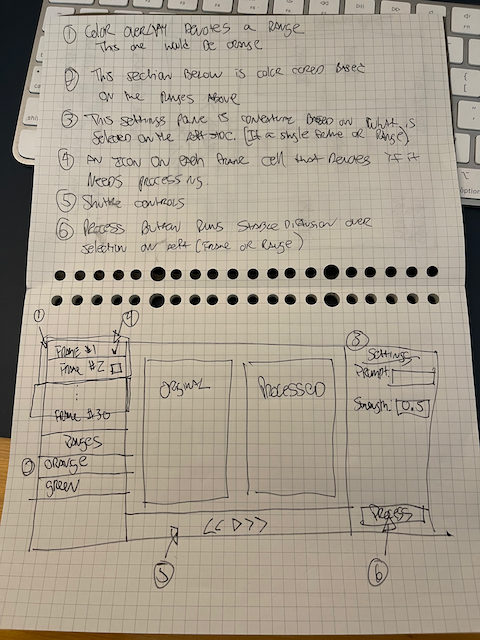 ① Color overlay denotes a range
This one would be orange
② This section below is color coded based
on the ranges above
③ This settings pane is contextual based on what is
selected on the left TOC. (If a single frame or range)
④ An icon on each frame cell that denotes if it
needs processing.
⑤ Shuttle controls
⑥ Process button runs Stable Diffusion over
selection on left (frame or range)
① ④
Frame #1 ✓
Frame #2
:
Frame #30
Ranges
② orange
green
Original
Processed
③
Settings
Prompt:
Strength: 0.5
<< ▷ >>
Process
⑤ ⑥
option